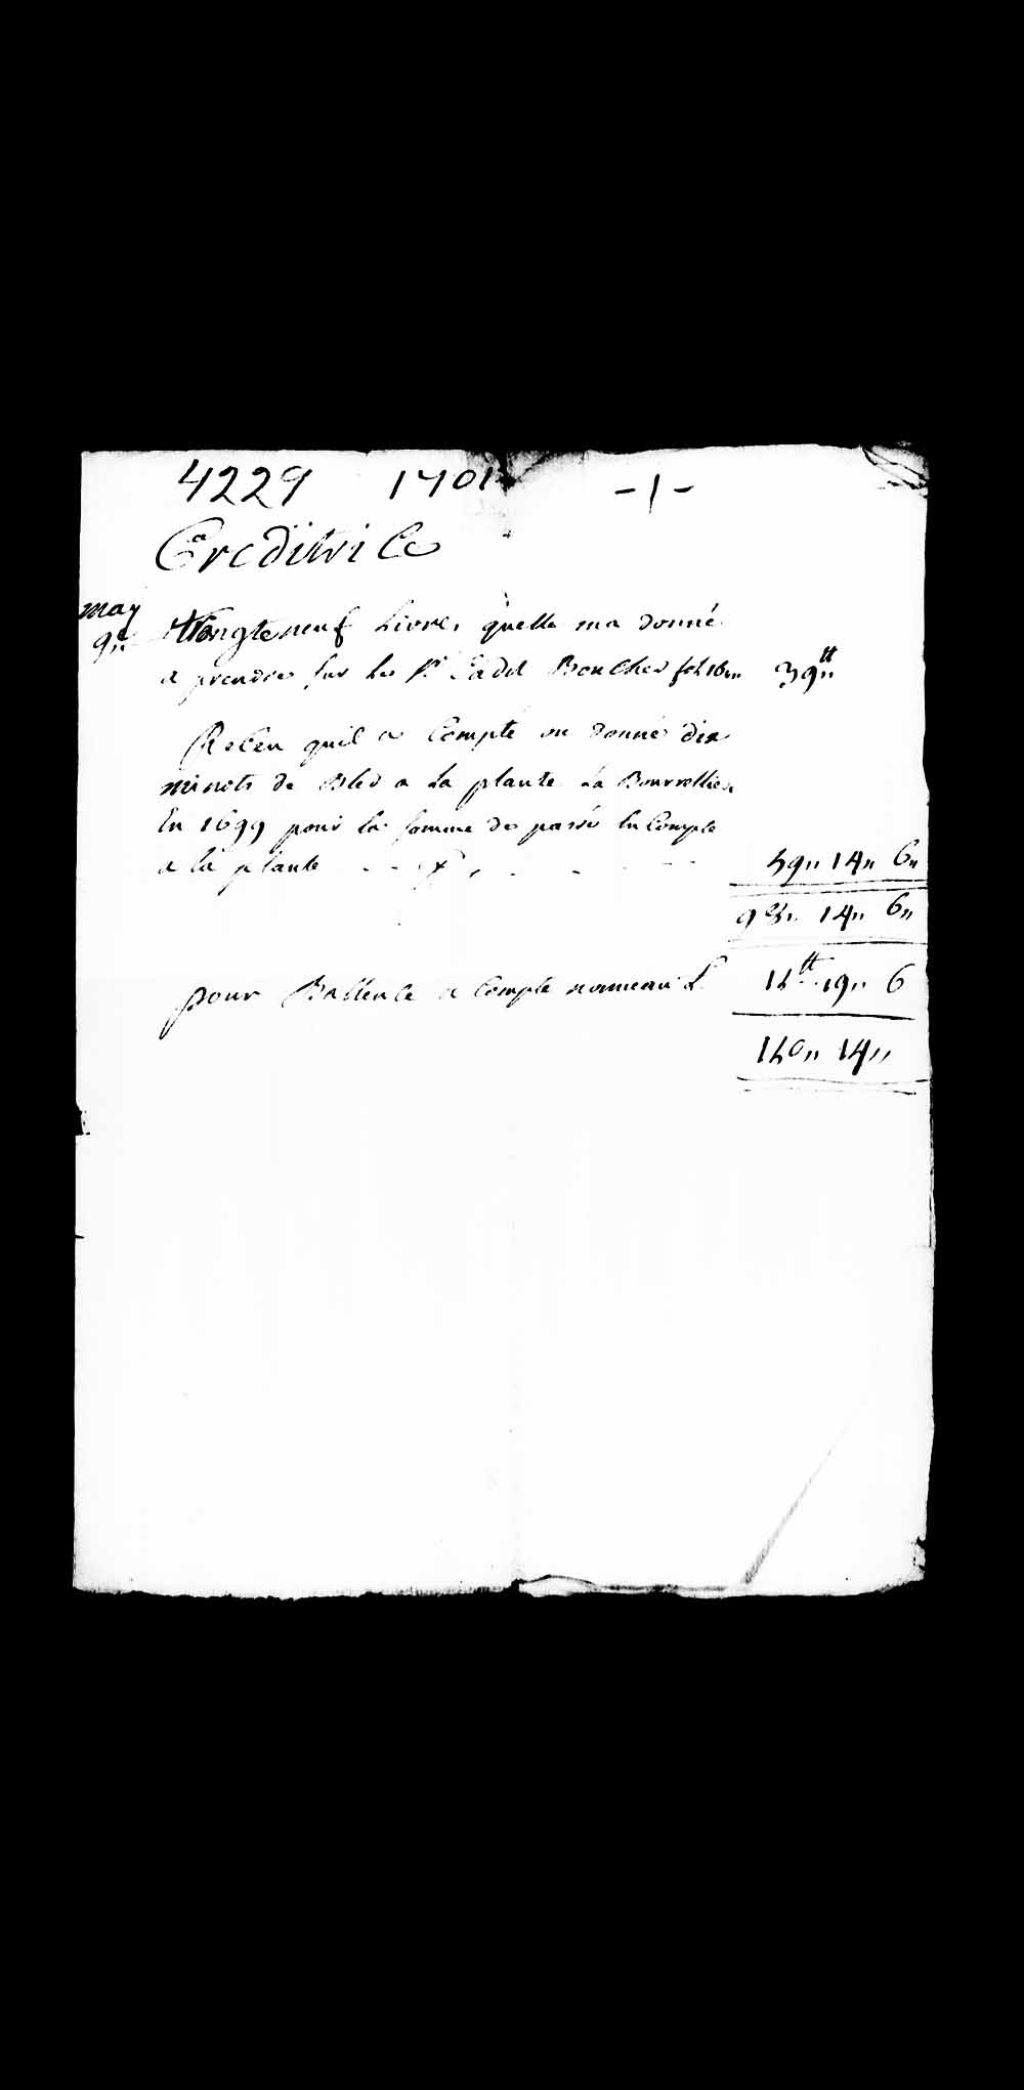 4229 1701 -1-
Creditrice
may
9" neuf Livres quelle ma donné
a prendre sur le Sr Cadet Boucher 39"tt
Receu quil a Compté ou donné dix
minots de Bled a La plante La Bourrellier
En 1699 pour la somme de passé En Compte
a la plante - - 59" 14" 6"
14" 6"
pour Ballence a Compte nouveau 19" 6
14"